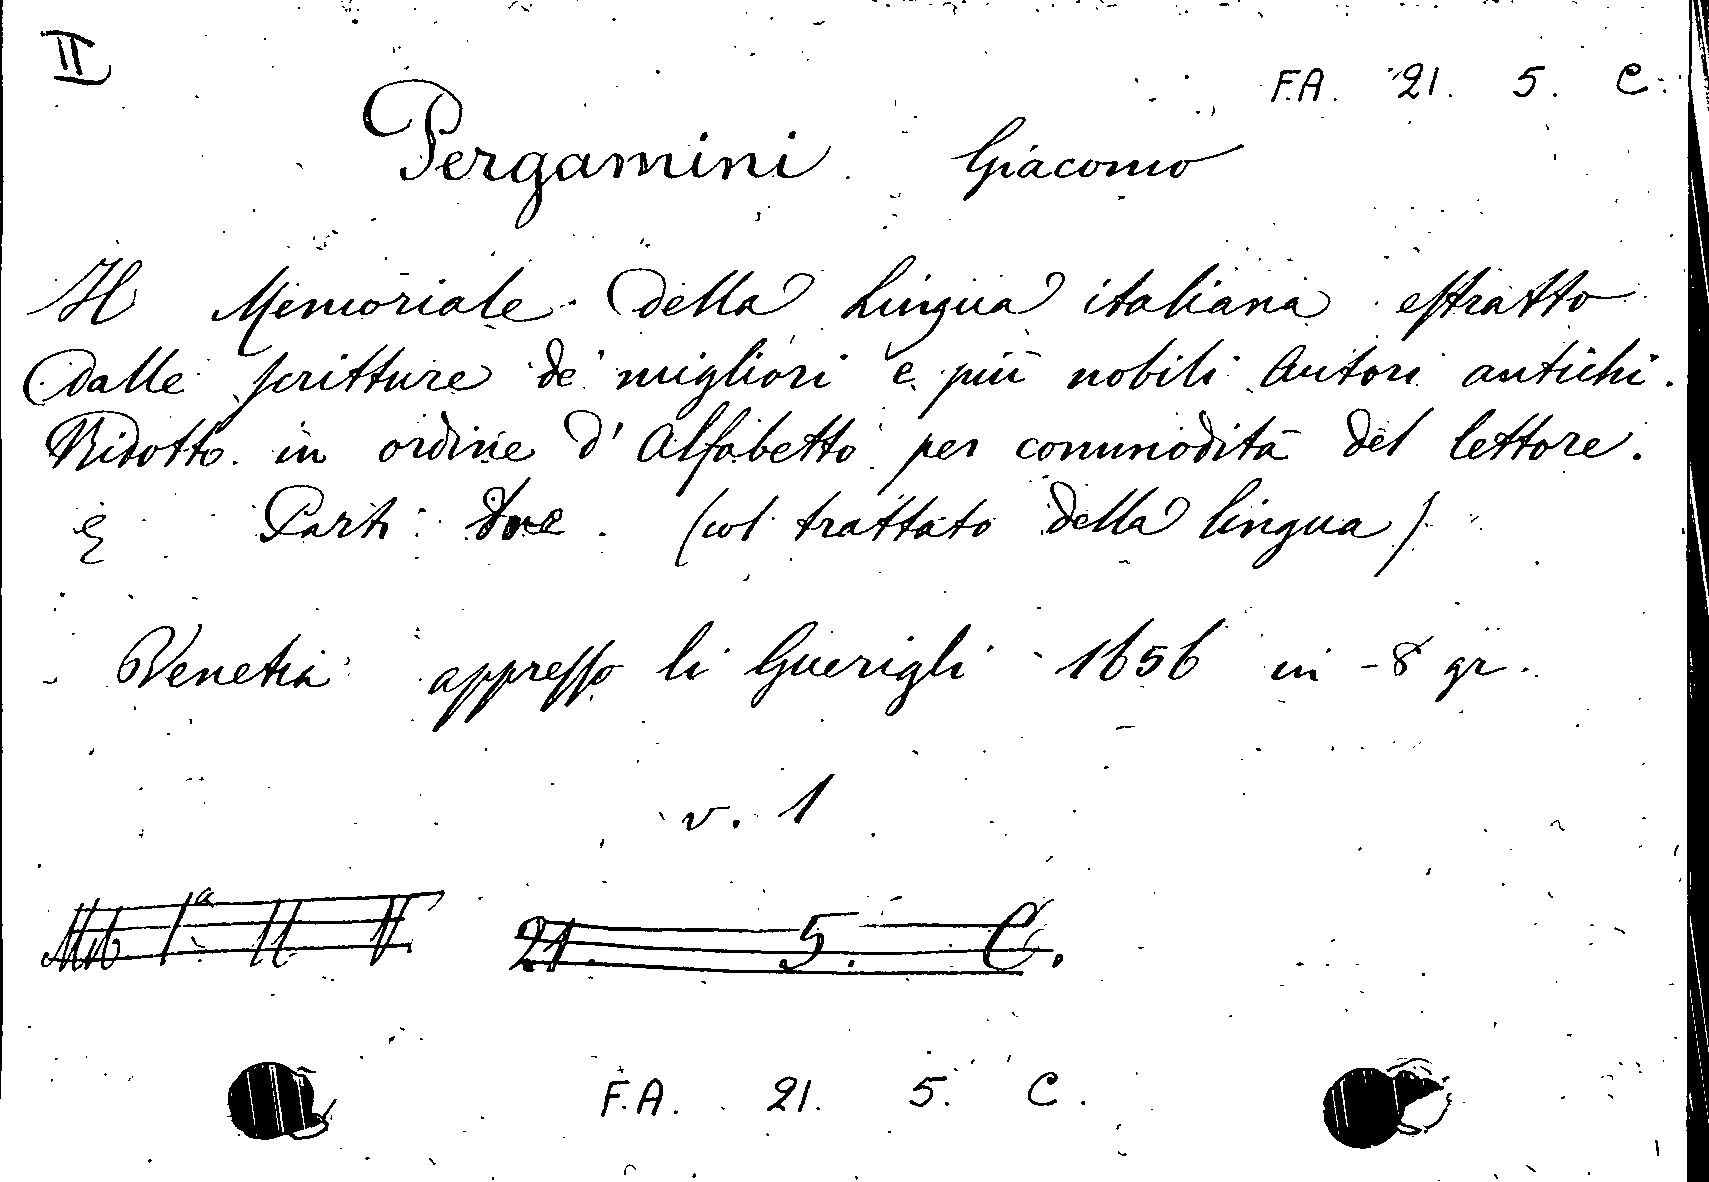 II
F.A. 21. 5. C.
Pergamini Giacomo
Il Memoriale della Lingua italiana estratto
dalle scritture de' migliori e più nobili Autori antichi.
Ridotto in ordine d'Alfabetto per commodità del lettore.
Parti due. (col trattato della lingua)
Venetia appresso li Guerigli 1656 in-8 gr.
v. 1
21. 5. C.
F.A. 21. 5. C.